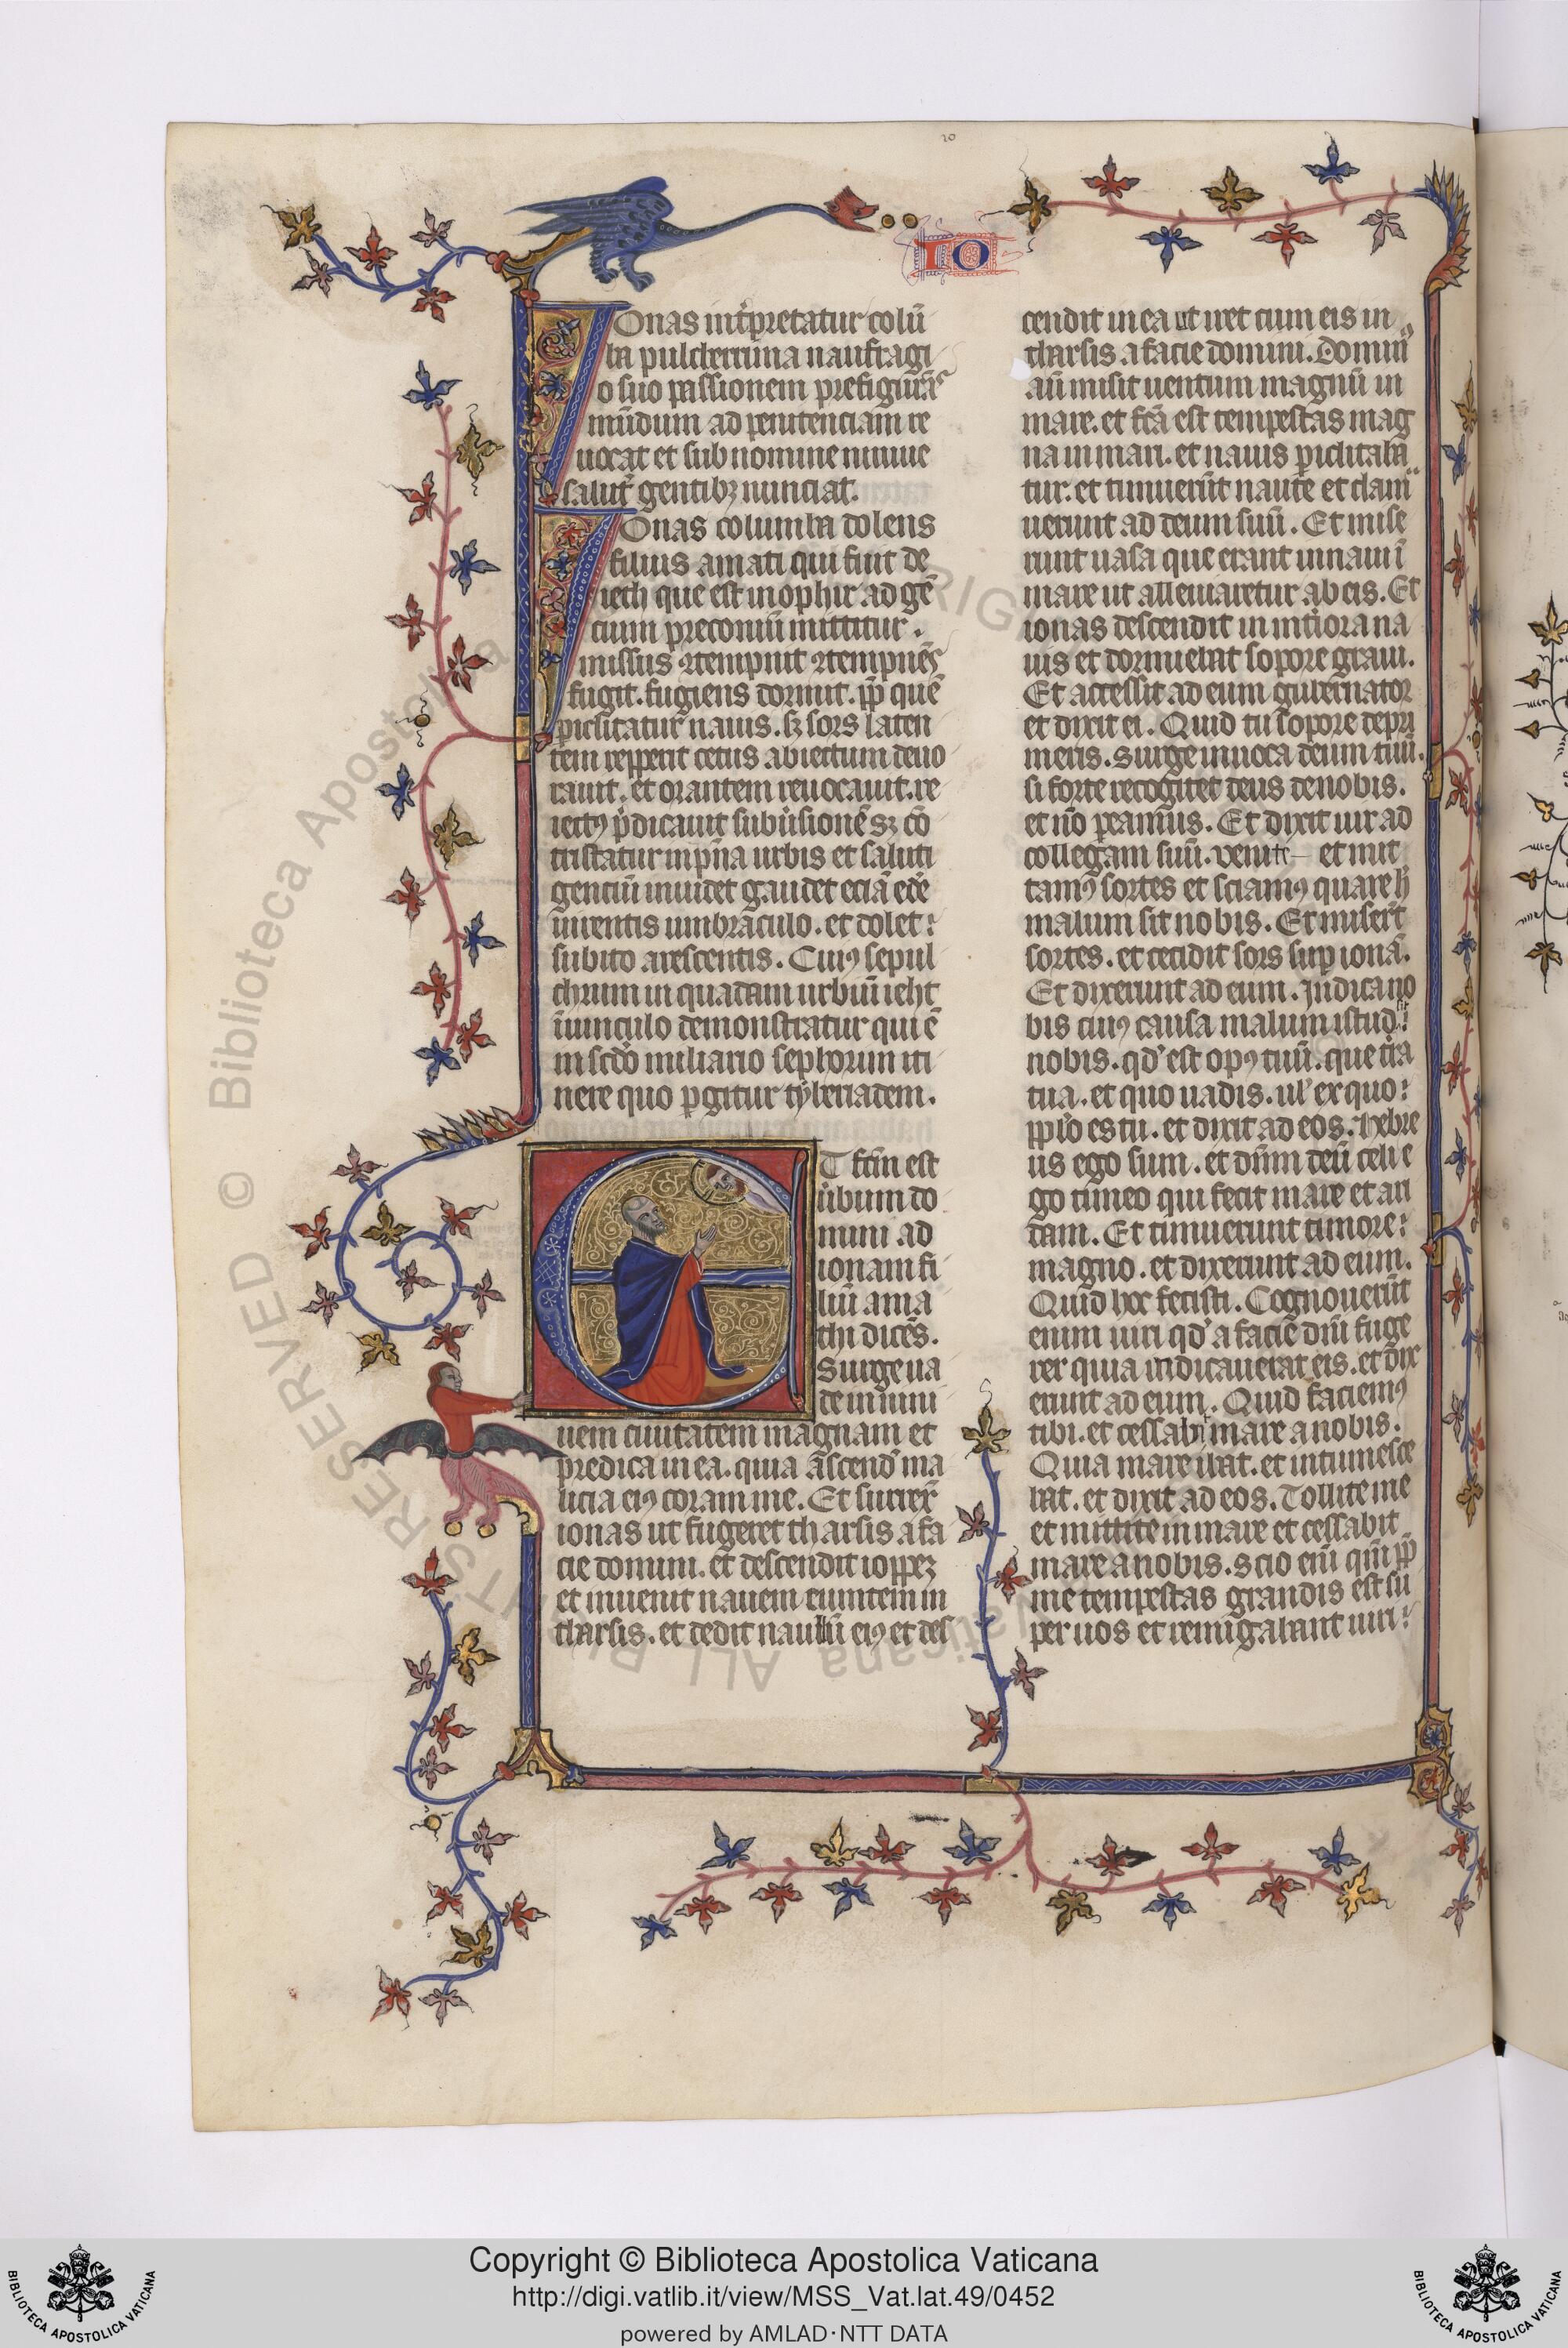 10
IO
IOnas int̉pretatur colū
ba pulcherrima naufragi
o suo passionem prefigurās
mūdum ad penitenciam re
uocat et sub nomine niniue
salut̉ gentibꝫ nunciat.
IOnas columba dolens
filius amati qui fuit de
ieth que est in ophir ad gē
cium preconiū mittitur.
missus ꝯtempnit ꝯtempnēs
fugit. fugiens dormit. ꝓp quē
ꝑiclitatur nauis. sꝫ sors laten
tem repperit cetus abiectum deuo
rauit. et orantem reuocauit. re
iectꝰ p̉dicauit subūsionē sꝫ cō
tristatur in pn̄a urbis et saluti
genciū inuidet gaudet eciā edē
uiuentis umbraculo. et dolet:
subito arescentis. Cuiꝰ sepul
chrum in quadam urbiū ieht
iūunculo demonstratur qui ē
in scd̉o miliario sephorim iti
nere quo ꝑgitur tyberiadem.
ET fc̄m est
ūbum do
mini ad
ionam fi
liū ama
thi dicēs.
Surge ua
de in nini
uem ciuitatem magnam et
predica in ea. quia ascend̉ ma
licia eiꝰ coram me. Et surrex̄
ionas ut fugeret tharsis a fa
cie domini. et descendit ioppeꝫ
et inuenit nauem euntem in
tharsis. et dedit naulū eiꝰ et des
cendit in ea ut iret cum eis in
tharsis a facie domini. Domin̄
aū misit uentum magnū in
mare. et fc̄a est tempestas mag
na in mari. et nauis ꝑiclitaba
tur. et timuerūt naute et clam
uerunt ad deum suū. Et mise
runt uasa que erant in naui ī
mare ut alleuiaretur ab eis. Et
ionas descendit in int̉iora na
uis et dormiebat sopore graui.
Et accessit ad eum gubernator
et dixit ei. Quid tu sopore depri
meris. surge inuoca deum tuū.
si forte recogitet deus de nobis.
et nō ꝑeamus. Et dixit uir ad
collegam suū. venite et mit
tamꝰ sortes et sciamꝰ quare h̄
malum sit nobis. Et miser̄t
sortes. et cecidit sors suꝑ ionā.
Et dixerunt ad eum. Indica no
bis cuiꝰ causa malum istud sit
nobis. qd̉ est opꝰ tuū. que tr̄a
tua. et quo uadis. ul̉ ex quo:
ppl̉o es tu. et dixit ad eos. hebre
us ego sum. et dn̄m deū celi e
go timeo qui fecit mare et ari
dam. Et timuerunt timore:
magno. et dixerunt ad eum.
Quid hoc fecisti. Cognouerūt
enim uiri qd̉ a facie dn̄i fuge
ret quia indicauerat eis. et dix
erunt ad eum. Quid faciemꝰ
tibi. et cessabit mare a nobis.
Quia mare ibat. et intumesce
bat. et dixit ad eos. Tollite me
et mittite in mare et cessabit
mare a nobis. scio eni̅ qm̄ ꝓp
me tempestas grandis est su
per uos et remigabant uiri:
© Biblioteca Apostolica Vaticana ALL RIGHTS RESERVED
Copyright © Biblioteca Apostolica Vaticana
http://digi.vatlib.it/view/MSS_Vat.lat.49/0452
powered by AMLAD·NTT DATA
BIBLIOTECA APOSTOLICA VATICANA
BIBLIOTECA APOSTOLICA VATICANA